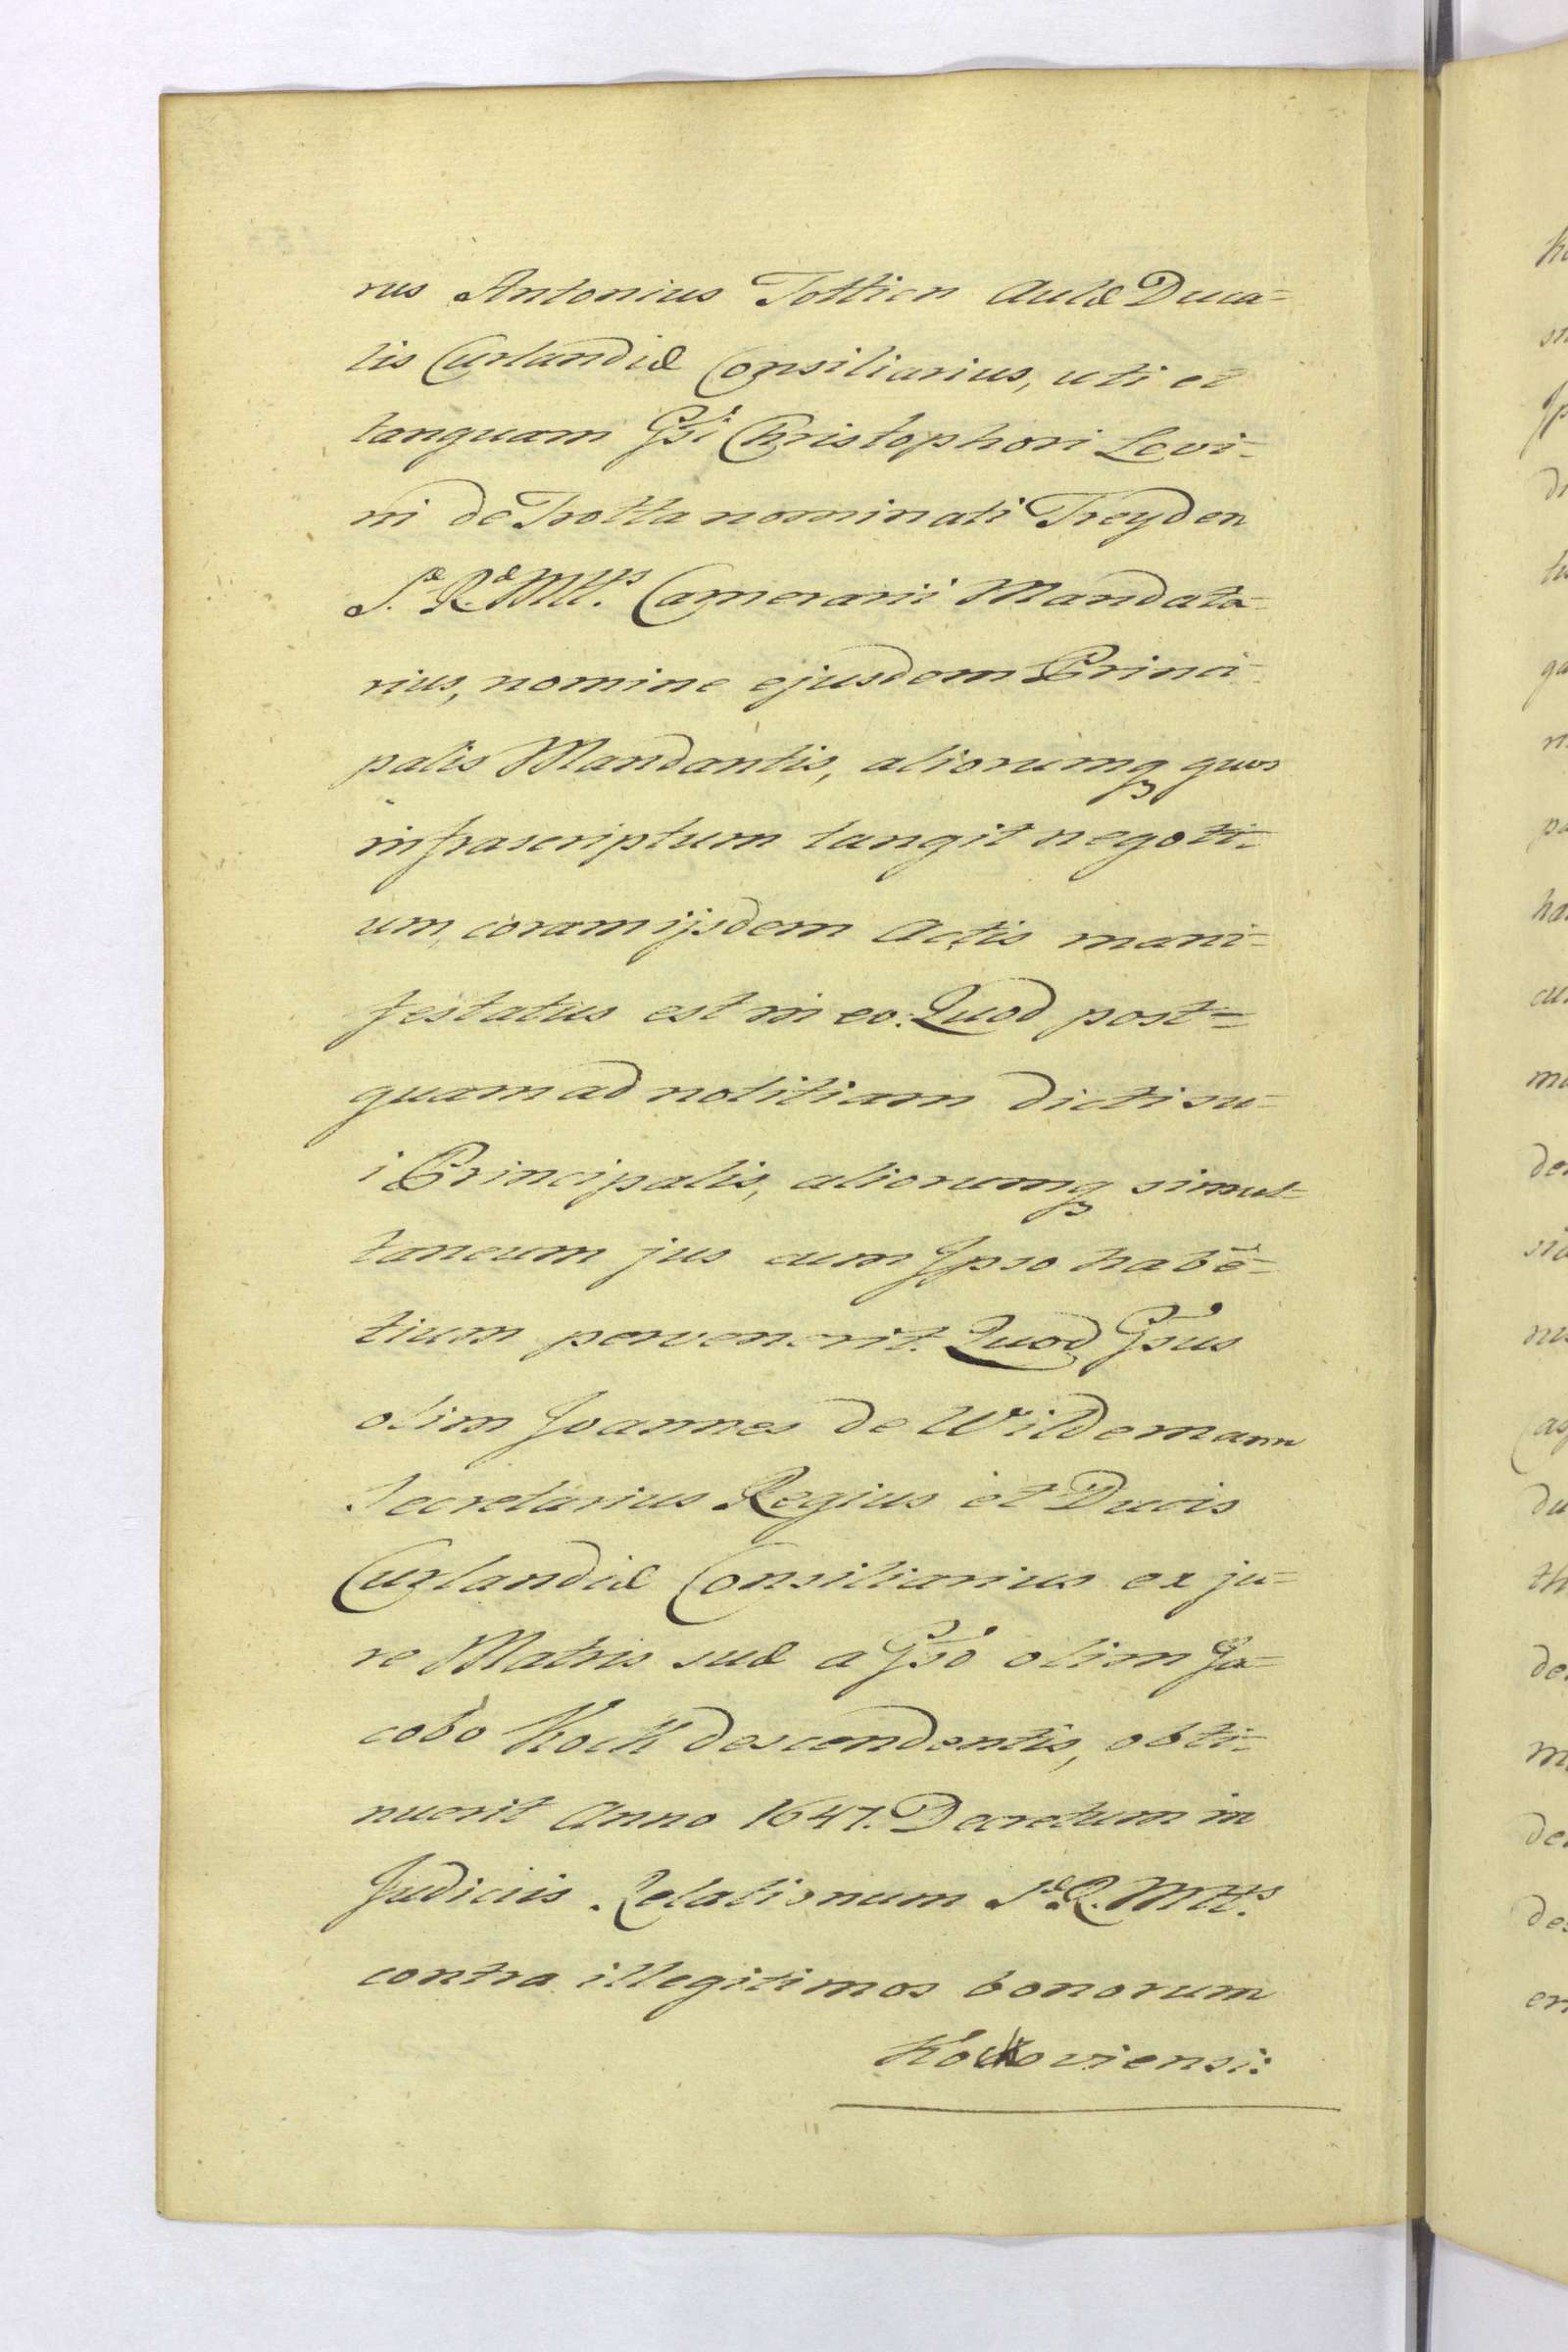 rus Antonius Tottien Aulæ Duca=
lis Curlandiæ Consiliarius, uti et
tanquam Gsi Christophori Levi=
ni de Trotta nominati Treyden
S.æ R.æ Mttis Camerarii Mandata=
rius, nomine ejusdem Princi=
palis Mandantis, aliorumq quos
infrascriptum tangit negoti=
um, coram ijsdem Actis mani=
festatus est in eo. Quod post=
quam ad notitiam dicti su=
i Principalis, aliorumq simul=
taneum jus cum Ipso habē=
tium pervenerit. Quod Gsus
olim Joannes de Wildemann
Secretarius Regius et Ducis
Curlandiæ Consiliarius ex ju=
re Matris suæ a Gso olim Ja=
cobo Kock descendentis, obti=
nuerit Anno 1647. Decretum in
Judiciis Relationum S.æ R. Mttis
contra illegitimos bonorum
Kockoviensi: